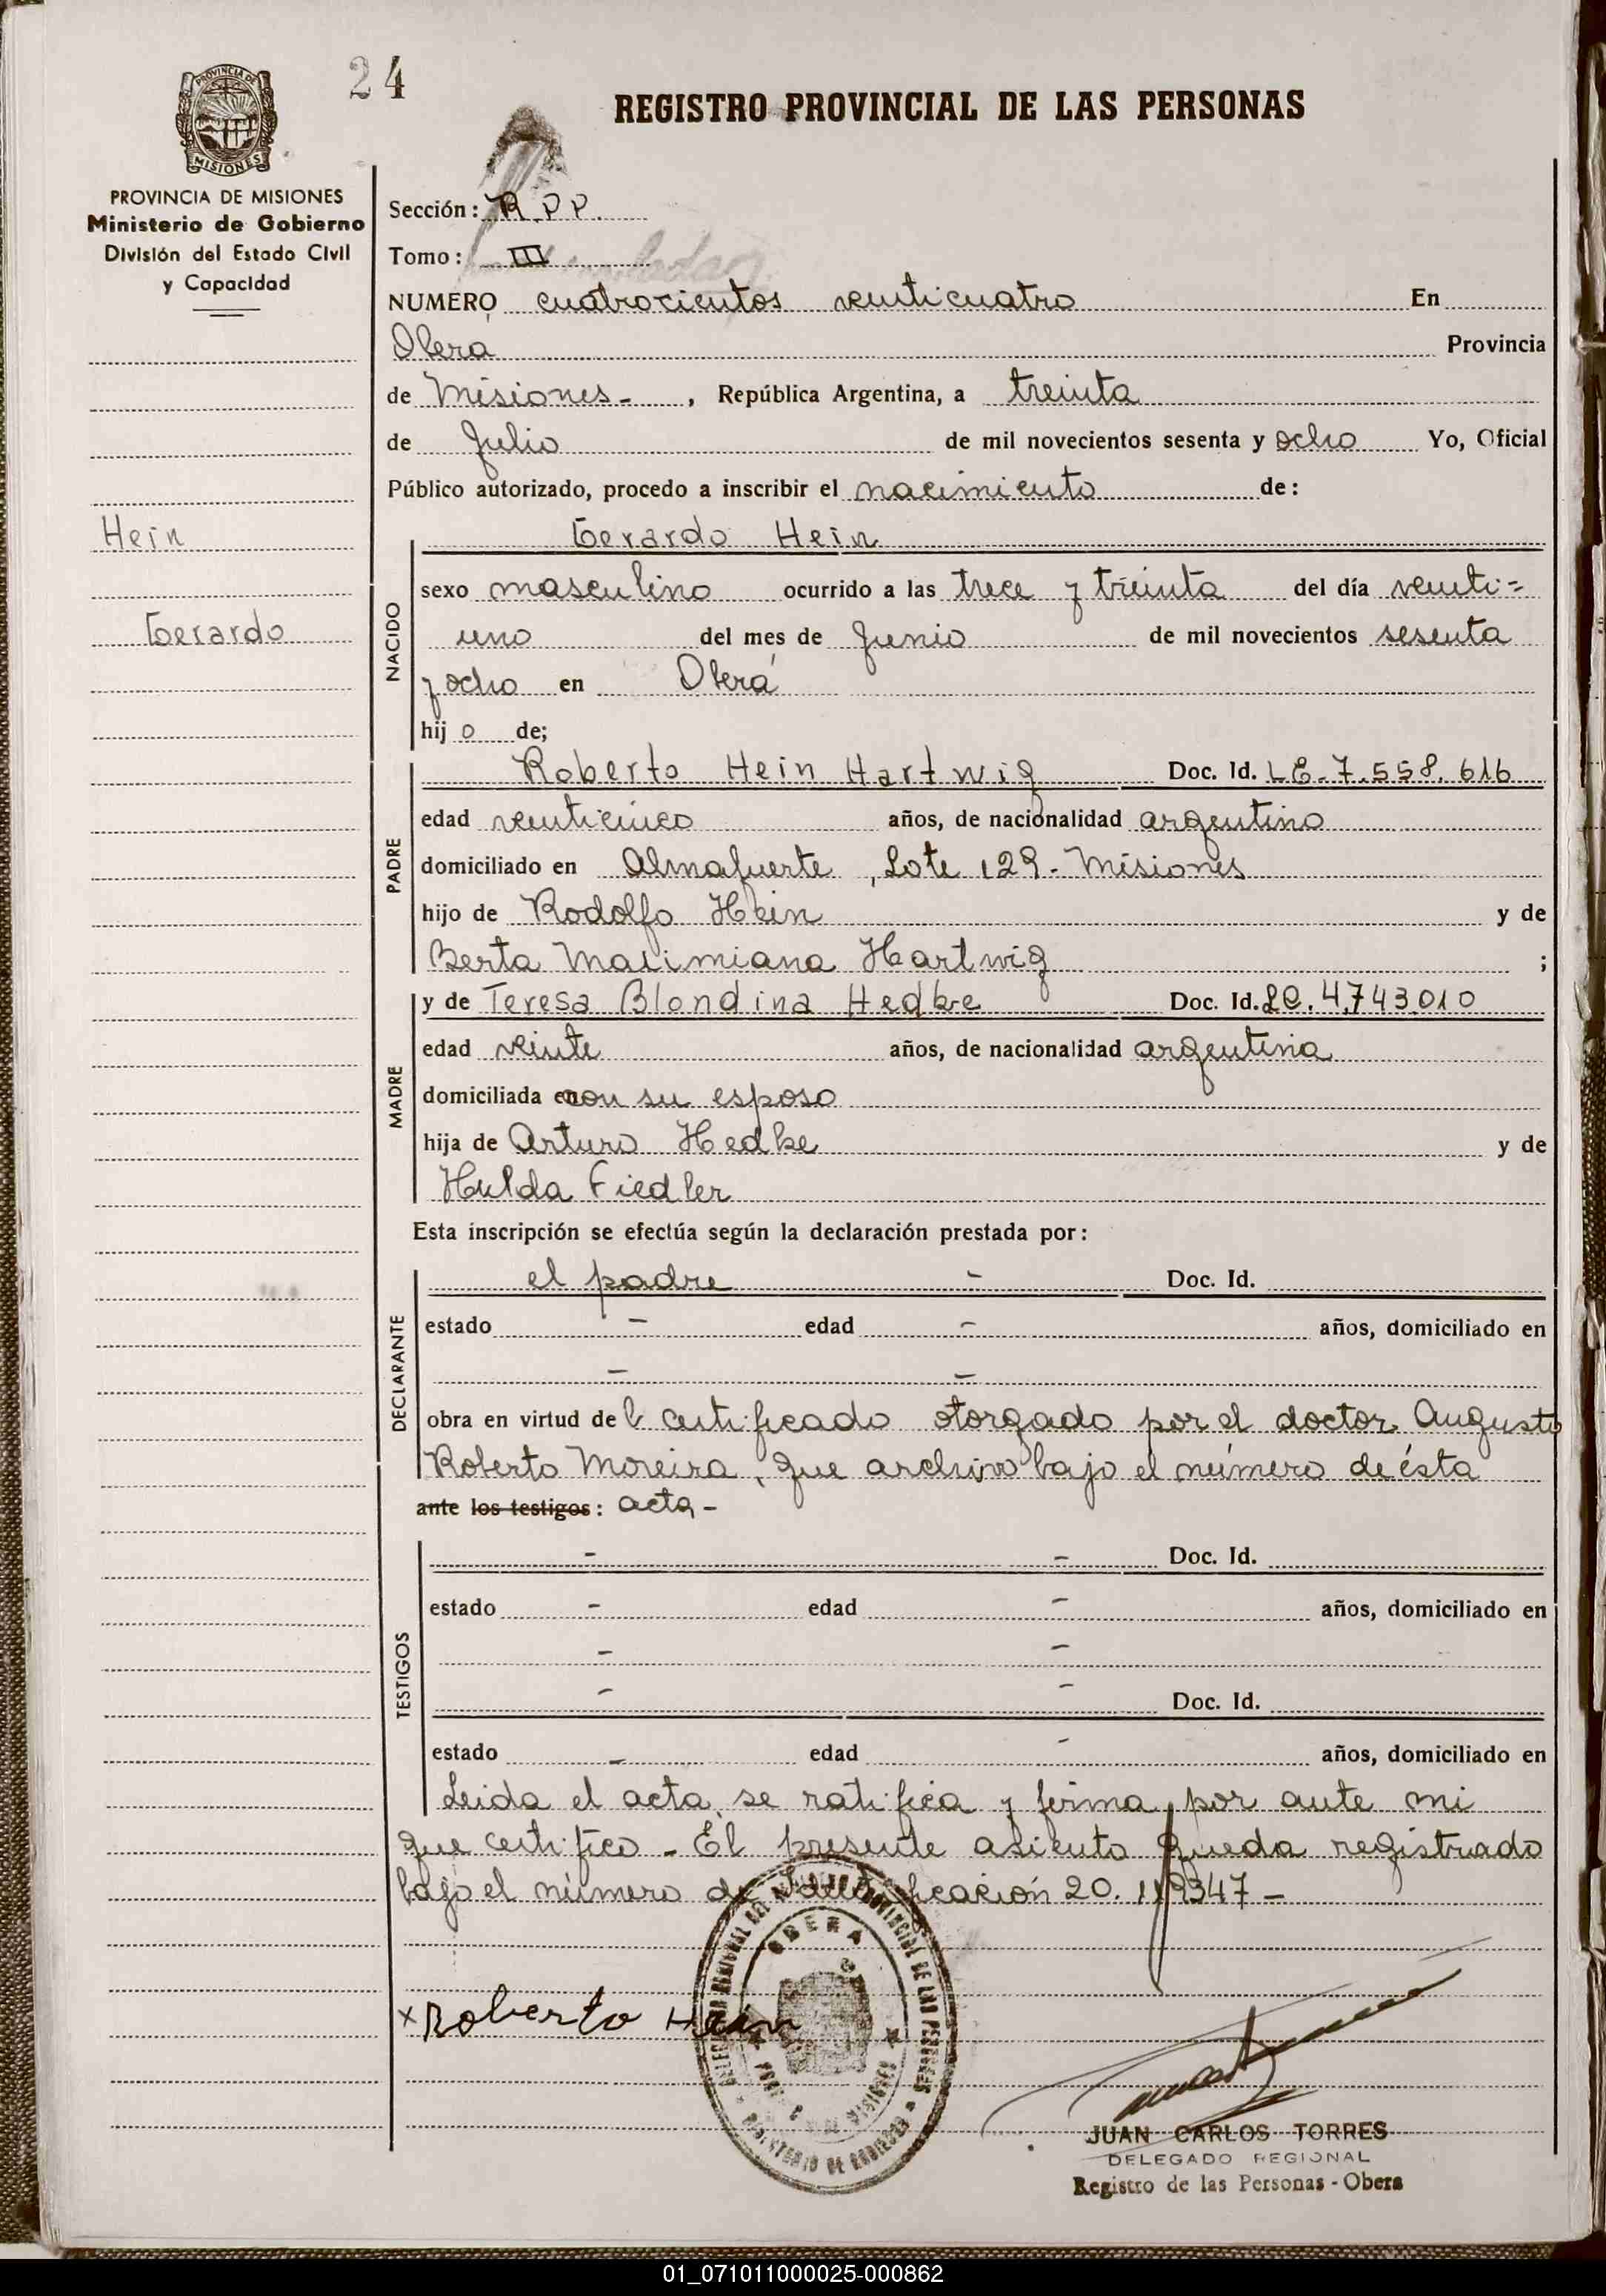 24
REGISTRO PROVINCIAL DE LAS PERSONAS
PROVINCIA DE MISIONES
PROVINCIA DE MISIONES
Ministerio de Gobierno
División del Estado Civil
y Capacidad
Hein
Gerardo
Sección: R.P.P.
Tomo: III
NUMERO cuatrocientos veinticuatro En
Oberá Provincia
de Misiones- , República Argentina, a treinta
de Julio de mil novecientos sesenta y ocho Yo, Oficial
Público autorizado, procedo a inscribir el nacimiento de:
Gerardo Hein
NACIDO
sexo masculino ocurrido a las trece y treinta del día veinti=
uno del mes de Junio de mil novecientos sesenta
y ocho en Oberá
hij o de;
PADRE
Roberto Hein Hartwig Doc. Id. LE-7.558.616
edad veinticinco años, de nacionalidad argentino
domiciliado en Almafuerte, Lote 129- Misiones
hijo de Rodolfo Hein y de
Berta Maximiana Hartwig ;
MADRE
y de Teresa Blondina Hedke Doc. Id. LC.4,743.010
edad veinte años, de nacionalidad argentina
domiciliada en con su esposo
hija de Arturo Hedke y de
Hulda Fiedler
Esta inscripción se efectúa según la declaración prestada por:
DECLARANTE
el padre - Doc. Id.
estado - edad - años, domiciliado en
- -
obra en virtud de l certificado otorgado por el doctor Augusto
Roberto Moreira, que archivo bajo el número de ésta
ante los testigos: acta-
TESTIGOS
- - Doc. Id.
estado - edad - años, domiciliado en
- -
- - Doc. Id.
estado - edad - años, domiciliado en
Leida el acta, se ratifica y firma, por ante mi
que certifico - El presente asiento queda registrado
bajo el número de Identificación 20.119347-
OBERA
x Roberto Hein
JUAN CARLOS TORRES
DELEGADO REGIONAL
Registro de las Personas - Obera
01_071011000025-000862